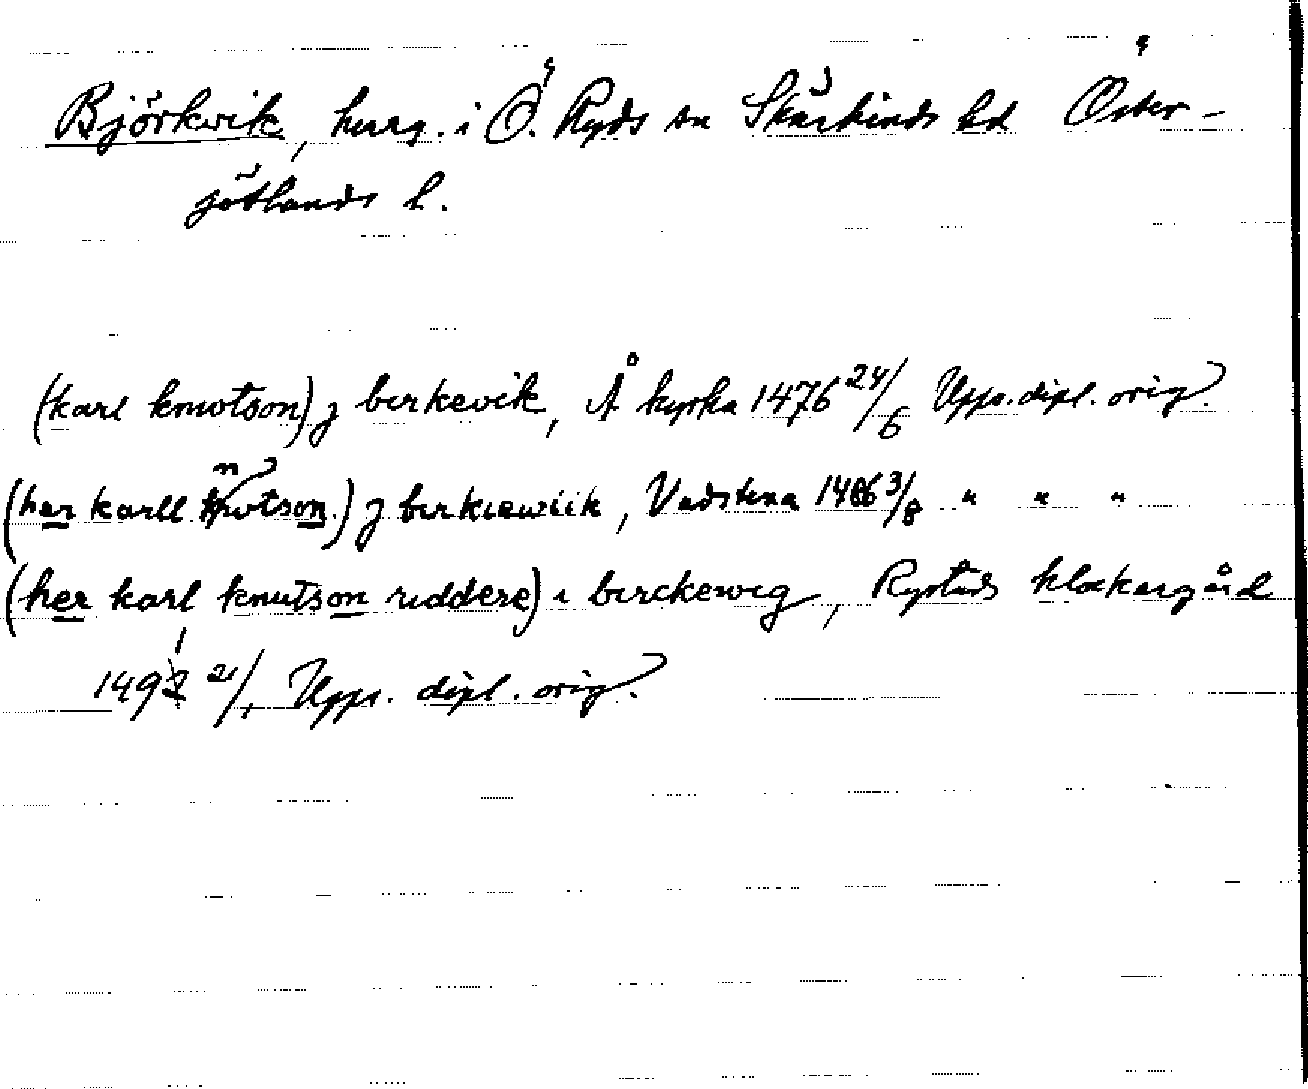 Björkvik, herrg. i Ö. Ryds sn Skärkinds hd Öster-
götlands l.
(karl knwtson) j birkevik, Å kyrka 1476 24/6 Upps. dipl. orig.
(her karll knwtson) j birkiewiik, Vadstena 1486 3/8 " " "
(her karl knutson riddere) i birckewig, Rystads klockargård
1491 21/1 Upps. dipl. orig.